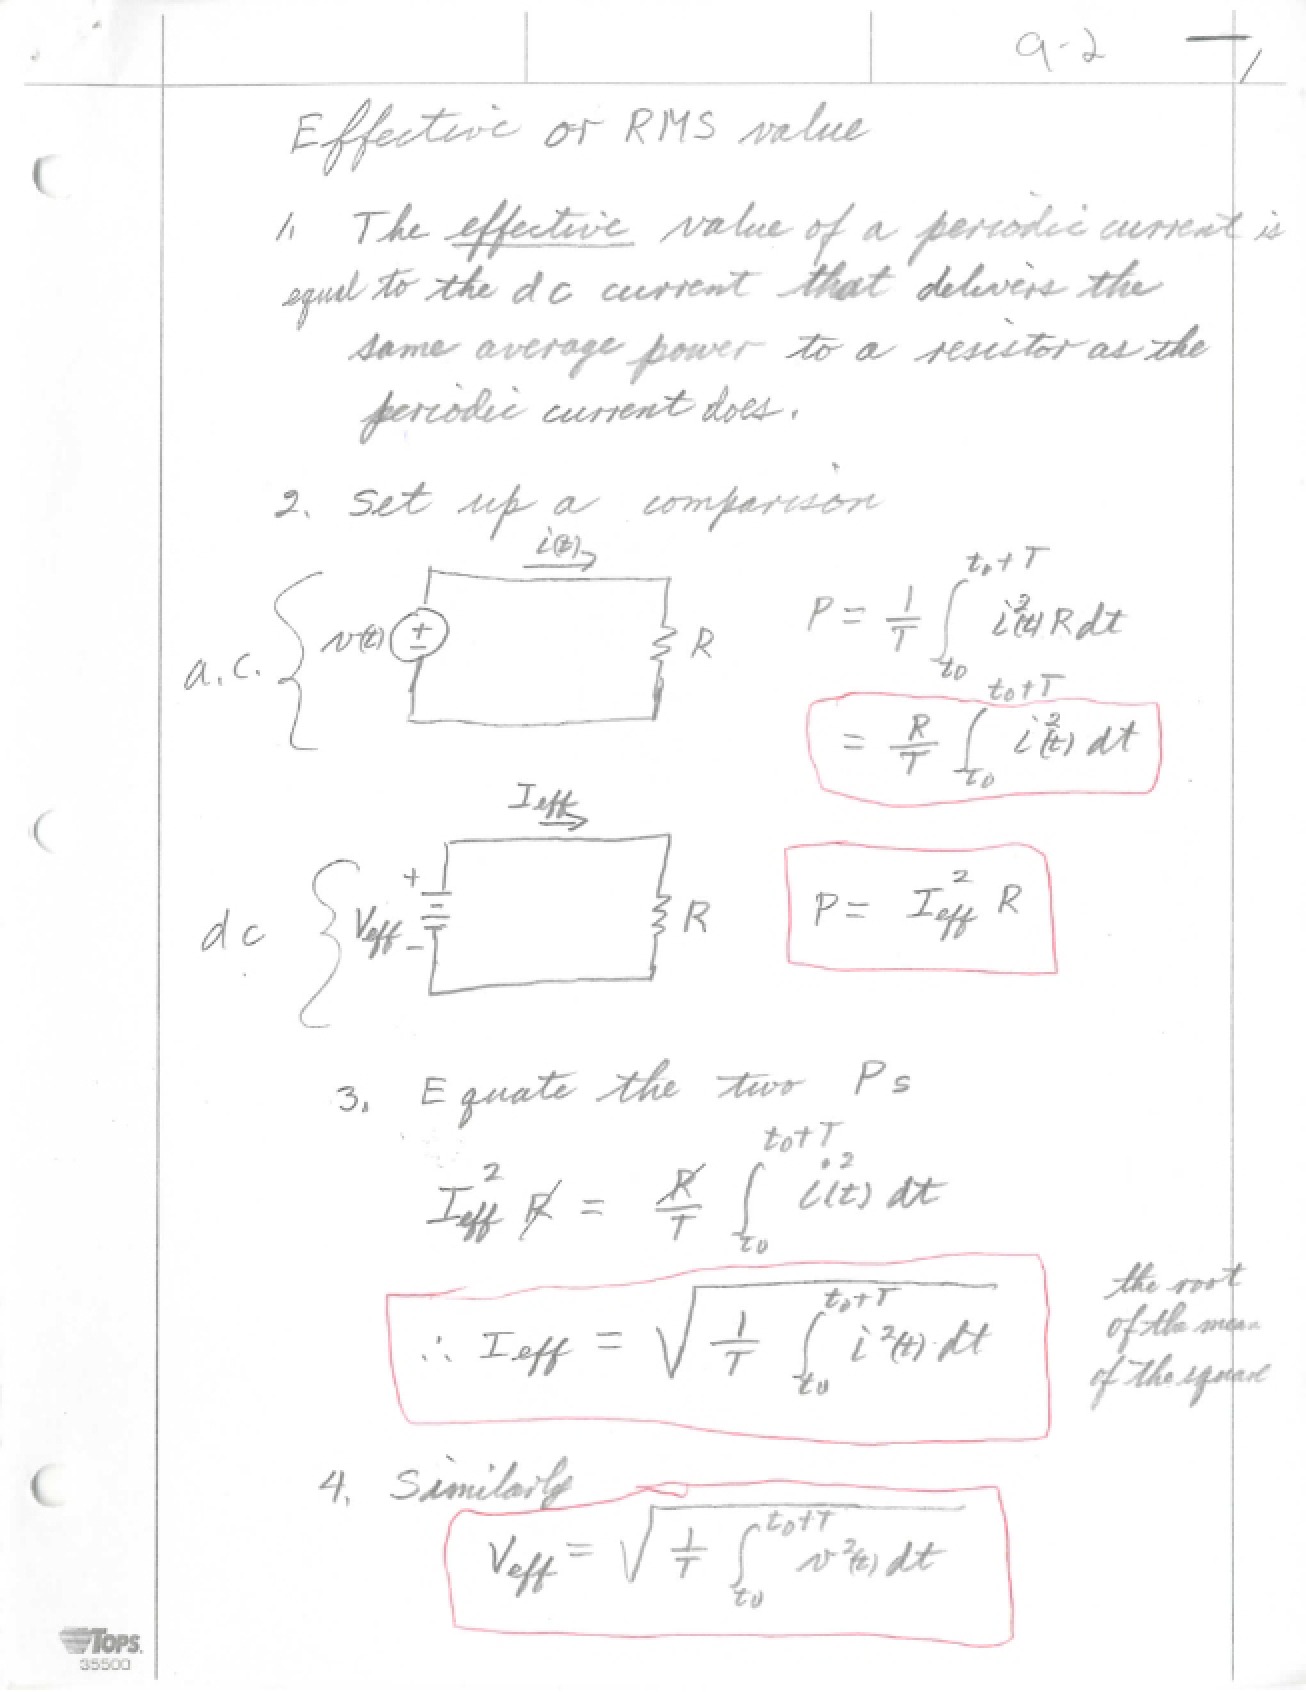 9-2 — 1
Effective or RMS value
1. The effective value of a periodic current is
equal to the dc current that delivers the
same average power to a resistor as the
periodic current does.
2. Set up a comparison
a.c. { v(t) ± i(t) → R
P = 1/T ∫_{t0}^{t0+T} i²(t) R dt
= R/T ∫_{t0}^{t0+T} i²(t) dt
dc { Veff + − Ieff → R
P = I²eff R
3. Equate the two Ps
I²eff R = R/T ∫_{t0}^{t0+T} i²(t) dt
∴ Ieff = √(1/T ∫_{t0}^{t0+T} i²(t) dt)
the root
of the mean
of the square
4. Similarly
Veff = √(1/T ∫_{t0}^{t0+T} v²(t) dt)
TOPS.
35500